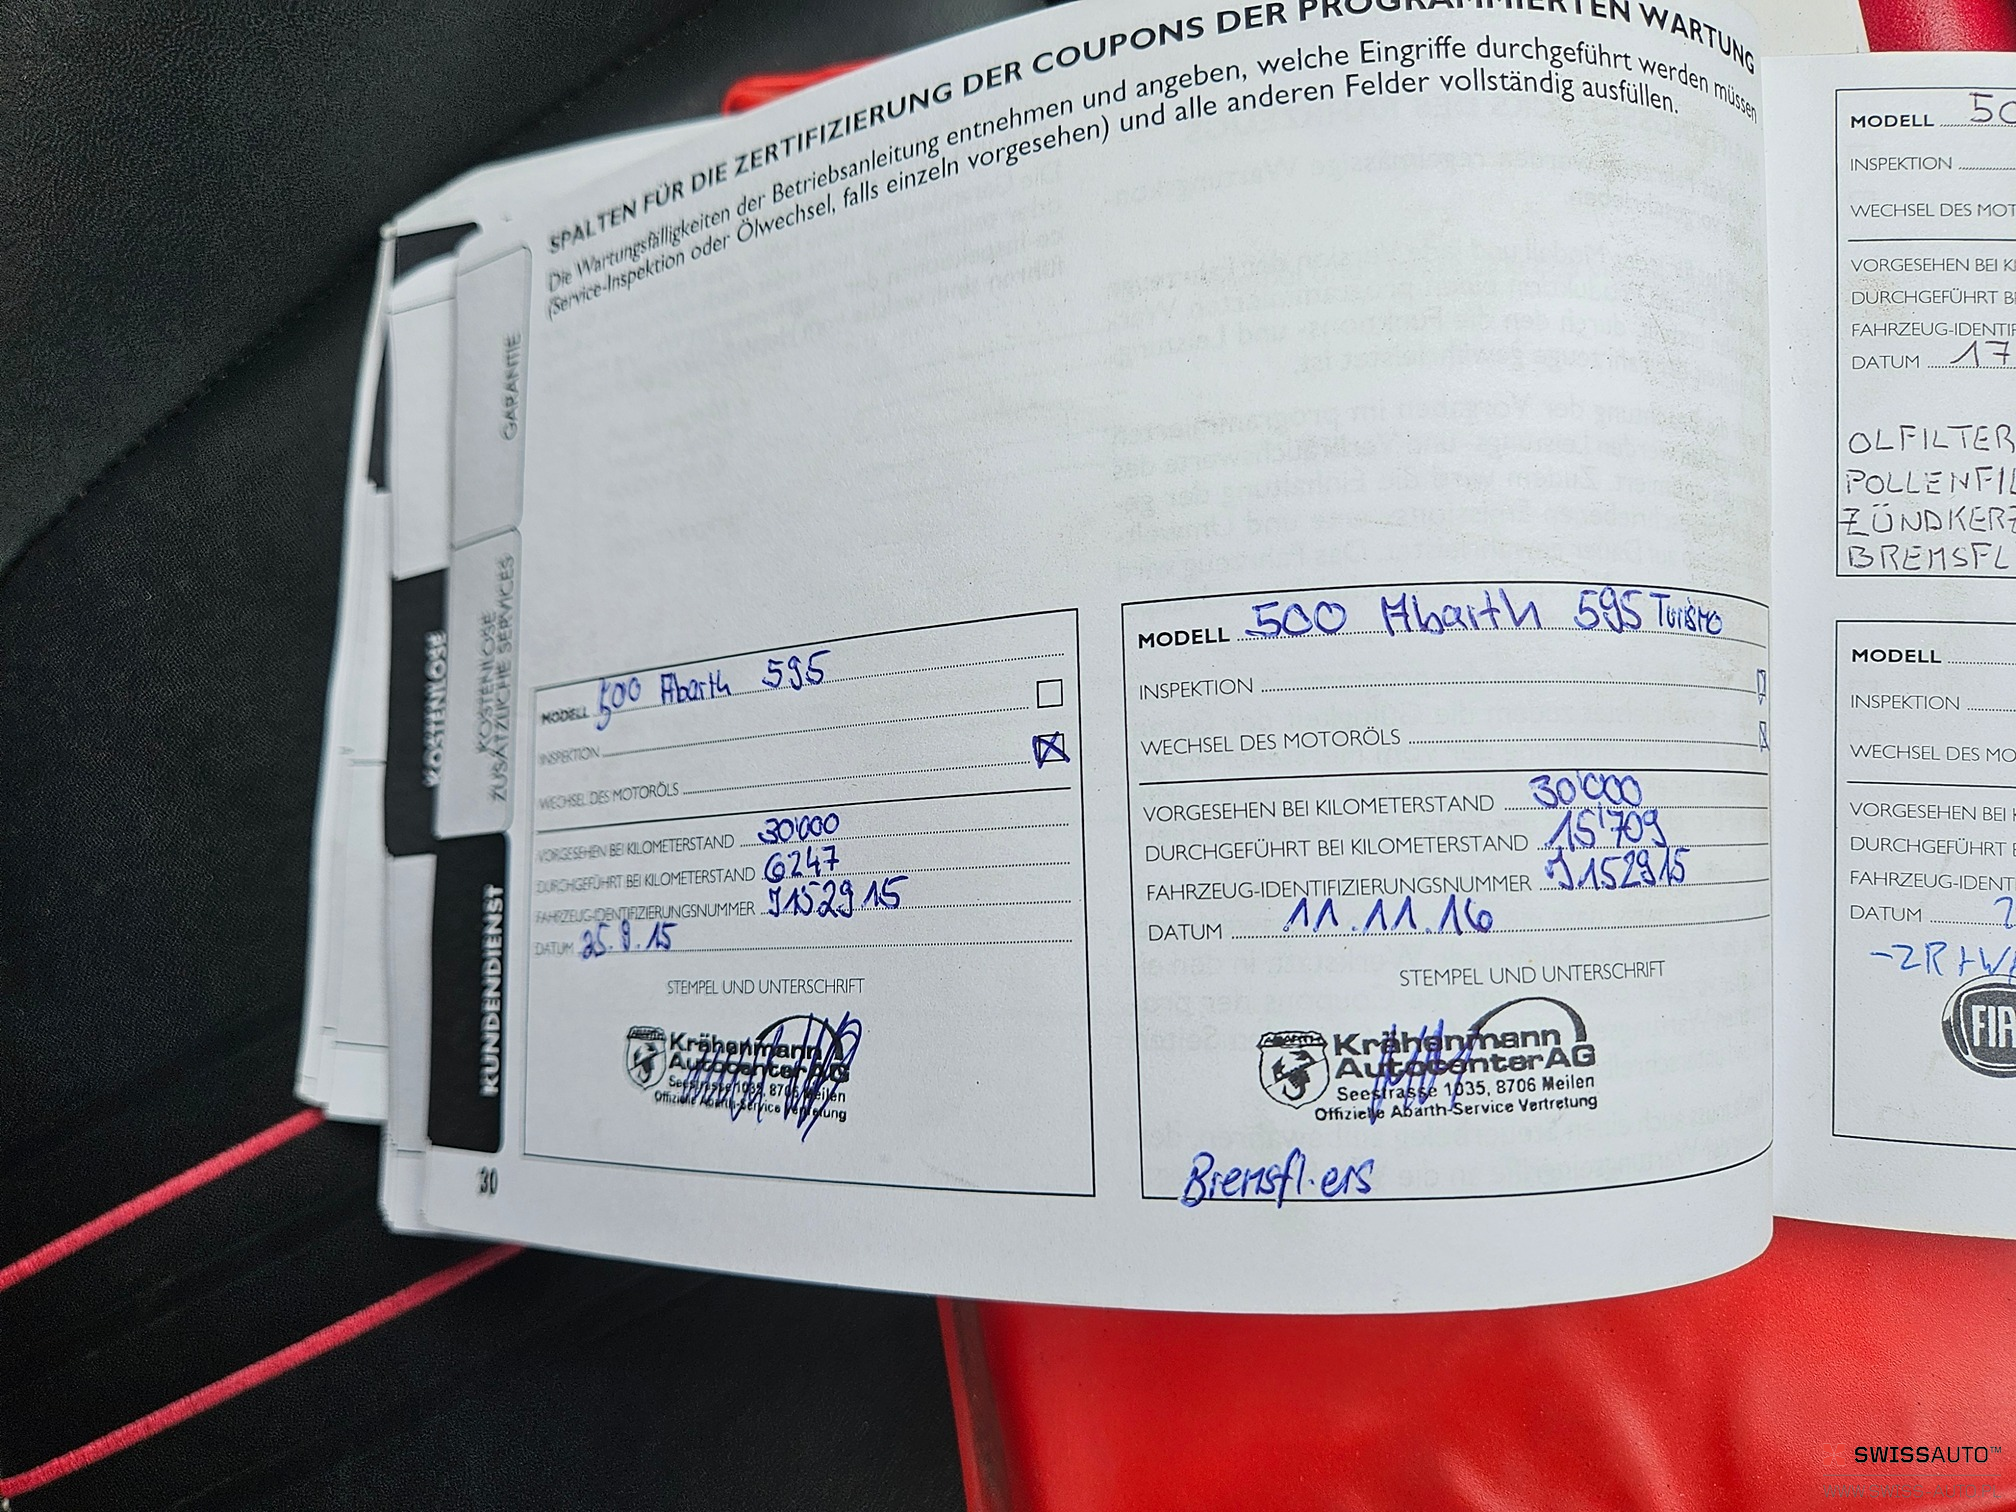 SPALTEN FÜR DIE ZERTIFIZIERUNG DER COUPONS DER PROGRAMMIERTEN WARTUNG
Die Wartungsfälligkeiten der Betriebsanleitung entnehmen und angeben, welche Eingriffe durchgeführt werden müssen
(Service-Inspektion oder Ölwechsel, falls einzeln vorgesehen) und alle anderen Felder vollständig ausfüllen.
GARANTIE
KOSTENLOSE
KOSTENLOSE
ZUSÄTZLICHE SERVICES
KUNDENDIENST
30
MODELL 500 Abarth 595
INSPEKTION
WECHSEL DES MOTORÖLS
VORGESEHEN BEI KILOMETERSTAND 30'000
DURCHGEFÜHRT BEI KILOMETERSTAND 6247
FAHRZEUG-IDENTIFIZIERUNGSNUMMER J152915
DATUM 25.9.15
STEMPEL UND UNTERSCHRIFT
ABARTH
Krähenmann
Autocenter AG
Seestrasse 1035, 8706 Meilen
Offizielle Abarth-Service Vertretung
MODELL 500 Abarth 595 Turismo
INSPEKTION
WECHSEL DES MOTORÖLS
VORGESEHEN BEI KILOMETERSTAND 30'000
DURCHGEFÜHRT BEI KILOMETERSTAND 15'709
FAHRZEUG-IDENTIFIZIERUNGSNUMMER J152915
DATUM 11.11.16
STEMPEL UND UNTERSCHRIFT
ABARTH
Krähenmann
Autocenter AG
Seestrasse 1035, 8706 Meilen
Offizielle Abarth-Service Vertretung
Bremsfl. ers
MODELL 50
INSPEKTION
WECHSEL DES MOT
VORGESEHEN BEI KI
DURCHGEFÜHRT B
FAHRZEUG-IDENTIF
DATUM 17
OLFILTER
POLLENFIL
ZÜNDKERZ
BREMSFL
MODELL
INSPEKTION
WECHSEL DES MO
VORGESEHEN BEI K
DURCHGEFÜHRT B
FAHRZEUG-IDENTI
DATUM 2
FIA
SWISSAUTO™